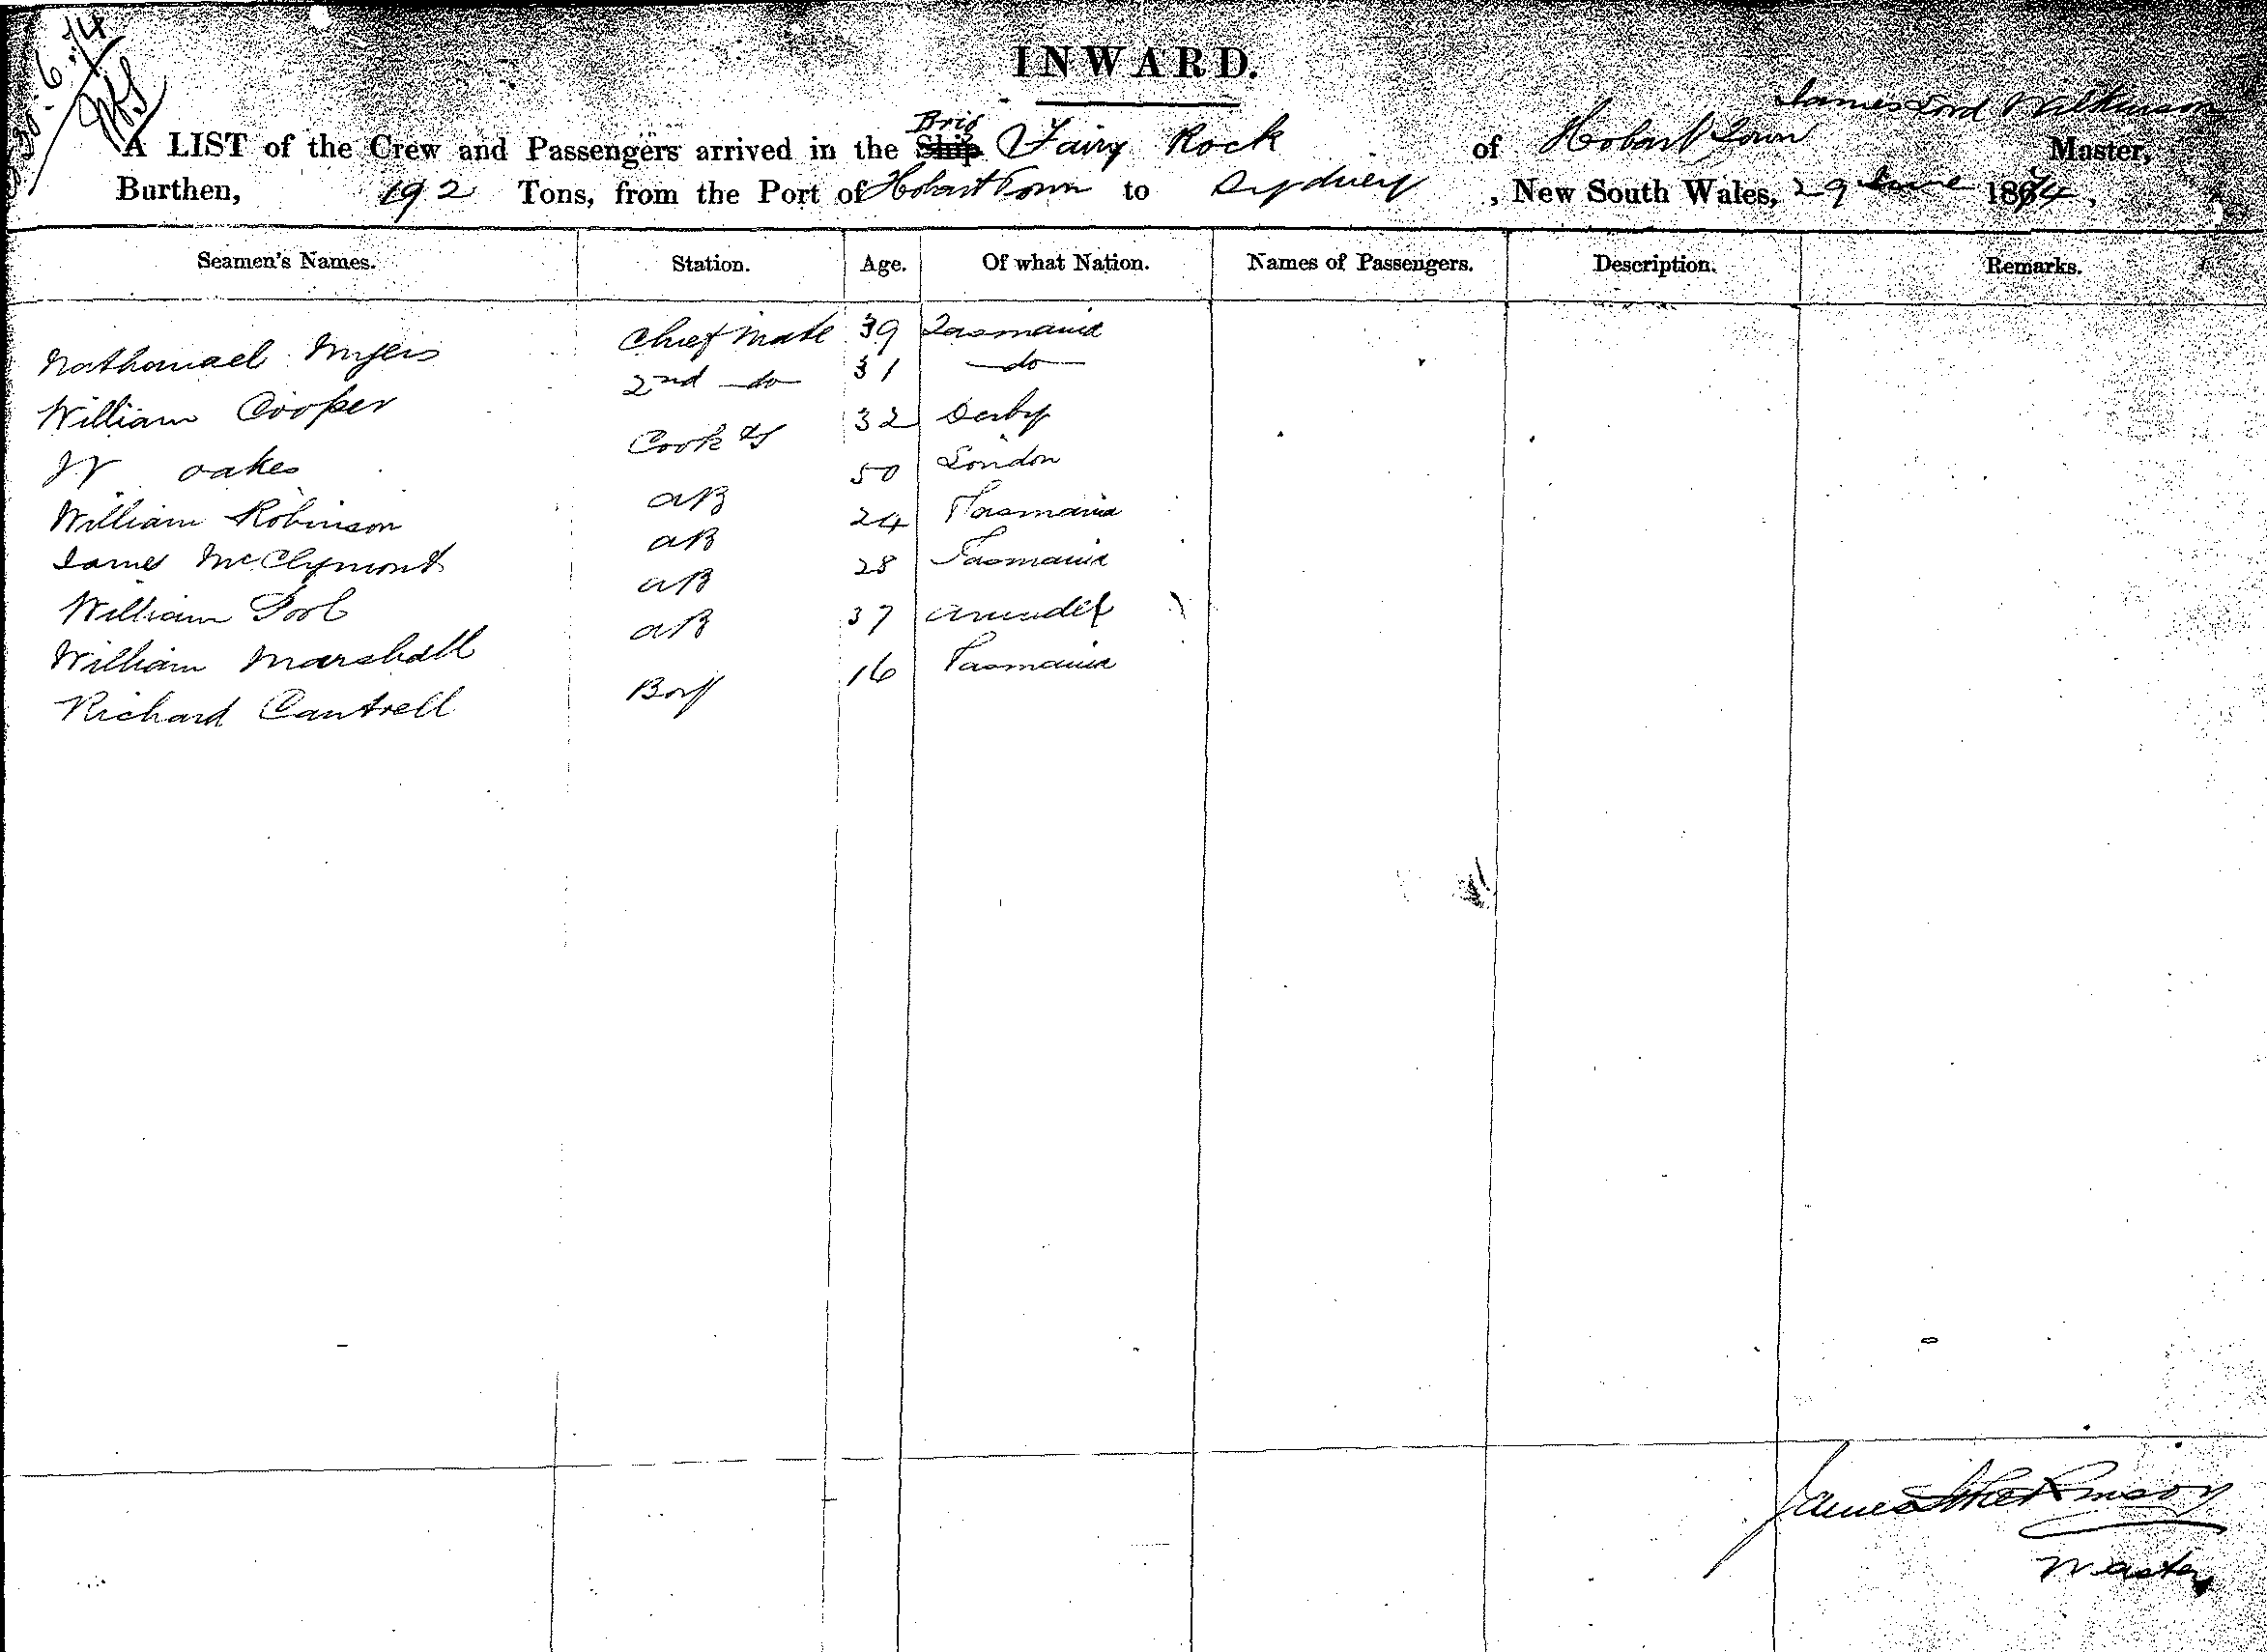 30.6.74
INWARD.
James Ford Wilkinson
Brig
A LIST of the Crew and Passengers arrived in the Ship Fairy Rock of Hobart Town Master,
Burthen, 192 Tons, from the Port of Hobart Town to Sydney, New South Wales, 29 June 1874,
Seamen's Names. Station. Age. Of what Nation. Names of Passengers. Description. Remarks.
Nathanael Myers Chief Mate 39 Tasmania
William Cooper 2nd do 31 do
W Oakes Cook & S 32 Derby
William Robinson AB 50 London
James McClymont AB 24 Tasmania
William AB 28 Tasmania
William Marshall AB 37 Arundel
Richard Cantrell Boy 16 Tasmania
James Wilkinson
Master